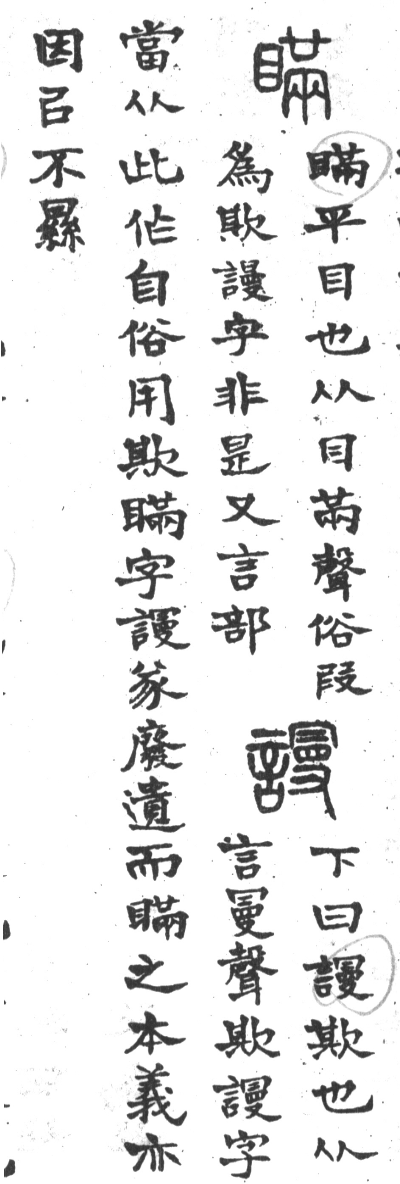 瞞
瞞平目也从目㒼聲俗叚
為欺謾字非是又言部
謾
下曰謾欺也从
言曼聲欺謾字
當从此作自俗用欺瞞字謾彖廢遺而瞞之本義亦
因㠯不㬎